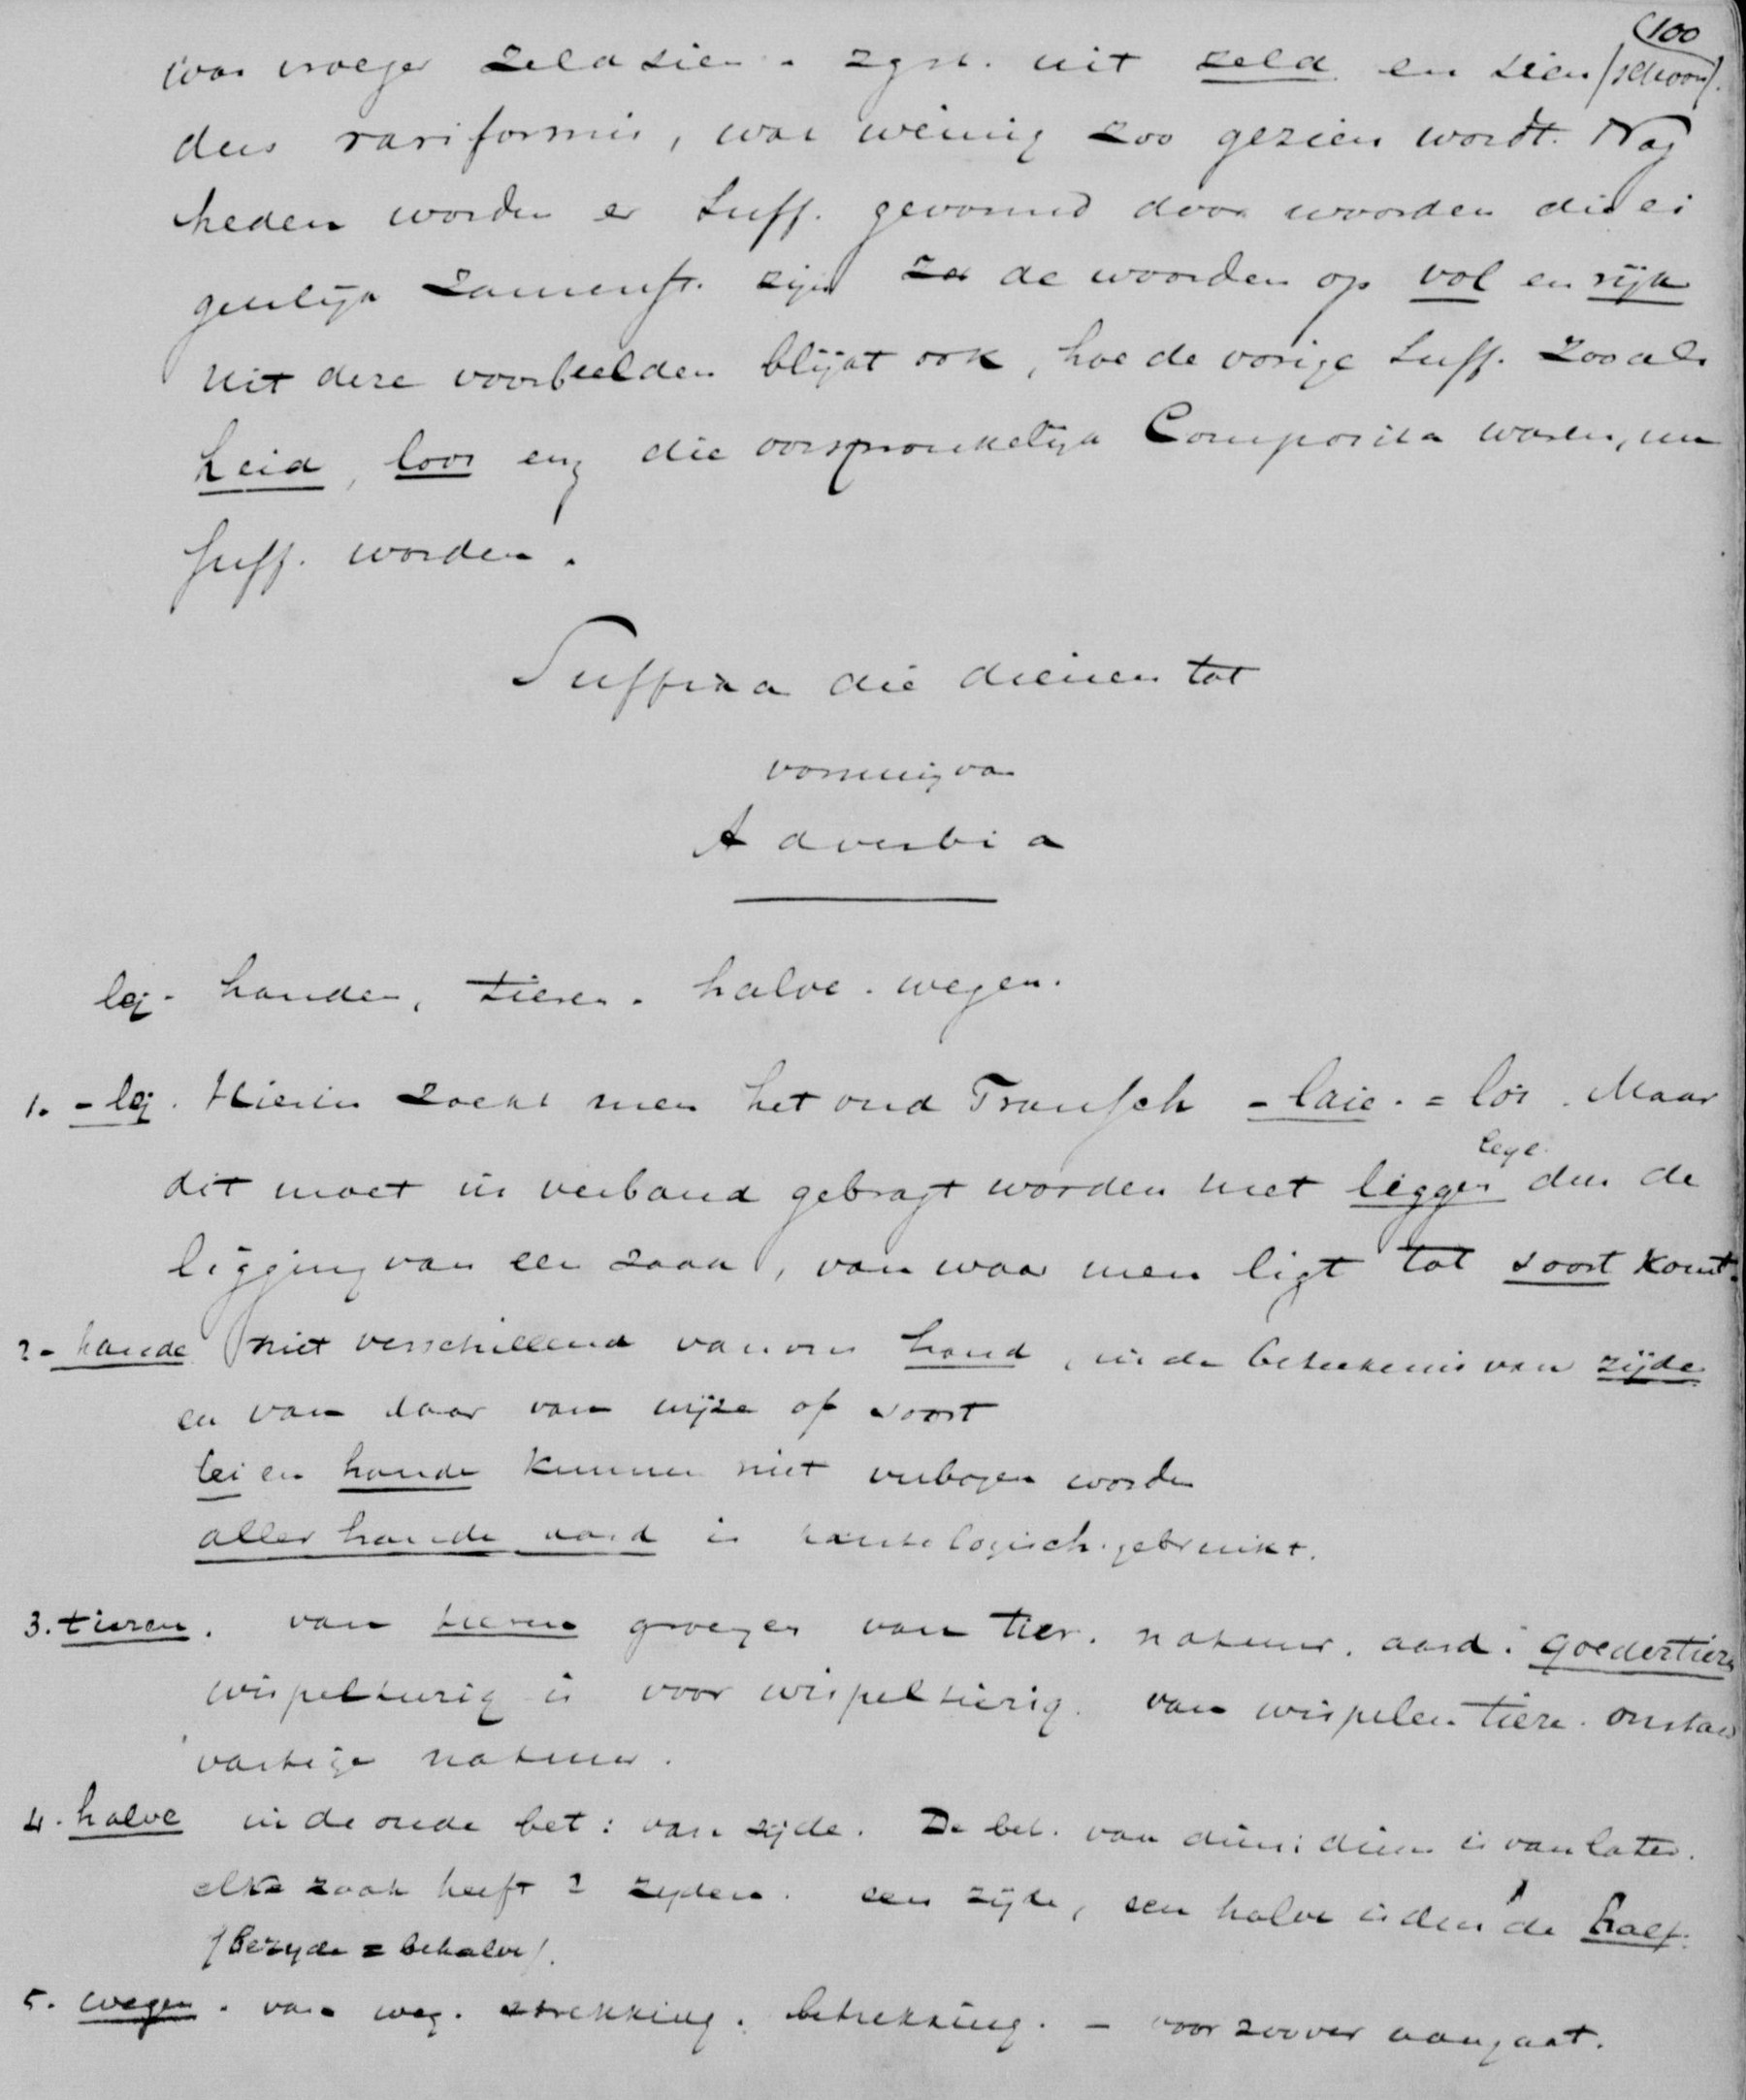 100
was vroeger zeldsien. zgst. uit zeld en sien (schoon).
dus rariformis, wat weinig zoo gezien wordt. Nog
heden worden er Suff. gevormd door woorden die ei
genlijk zamenst. zijn za de woorden op vol en rijk
uit deze voorbeelden blijkt ook, hoe de vorige Suff. zooals
heid, loos enz die oorspronkelijk Composita waren, nu
Suff. worden.
Suffixa die dienen tot
vorming van
Adverbia
lej. handen, tieren. halve. wegen.
1. - lej. Hierin zocht men het oud Fransch - laie. = loi. Maar
lege.
dit moet in verband gebragt worden met liggen dus de
ligging van een zaak, van waar men ligt tot soort komt.
2 - hande niet verschillend van ons hand, in de beteekenis van zijde
en van daar van wijze of soort
lei en hande kunnen niet verbogen worden
aller hande aard is tautologisch gebruikt.
3. tieren. van tieren groeyen van tier. natuur. aard. goedertieren
wispelturig is voor wispeltierig. van wispelen tiere. onstand
vastige natuur.
4. halve in de oude bet: van zijde. De bet. van dimidium is van later.
elke zaak heeft 2 zyden. een zijde, een halve is dus de half.
(bezyde = behalve).
5. wegen. van weg. strekking. betrekking. - voor zoover aangaat.